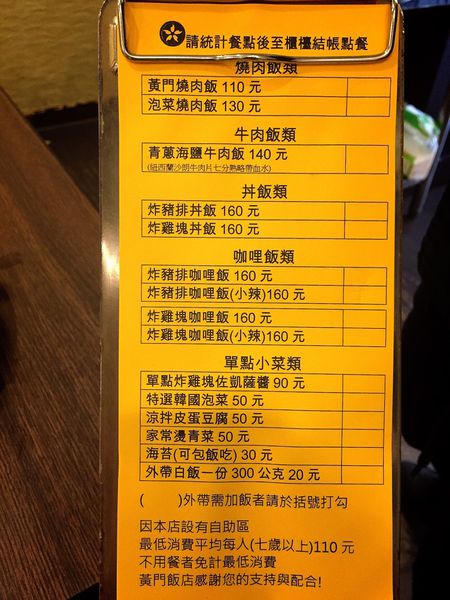 請統計餐點後至櫃檯結帳點餐
燒肉飯類
黃門燒肉飯 110 元
泡菜燒肉飯 130 元
牛肉飯類
青蔥海鹽牛肉飯 140 元
(紐西蘭沙朗牛肉片七分熟略帶血水)
丼飯類
炸豬排丼飯 160 元
炸雞塊丼飯 160 元
咖哩飯類
炸豬排咖哩飯 160 元
炸豬排咖哩飯(小辣)160 元
炸雞塊咖哩飯 160 元
炸雞塊咖哩飯(小辣)160 元
單點小菜類
單點炸雞塊佐凱薩醬 90 元
特選韓國泡菜 50 元
涼拌皮蛋豆腐 50 元
家常燙青菜 50 元
海苔(可包飯吃) 30 元
外帶白飯一份 300 公克 20 元
(　　)外帶需加飯者請於括號打勾
因本店設有自助區
最低消費平均每人(七歲以上)110 元
不用餐者免計最低消費
黃門飯店感謝您的支持與配合!